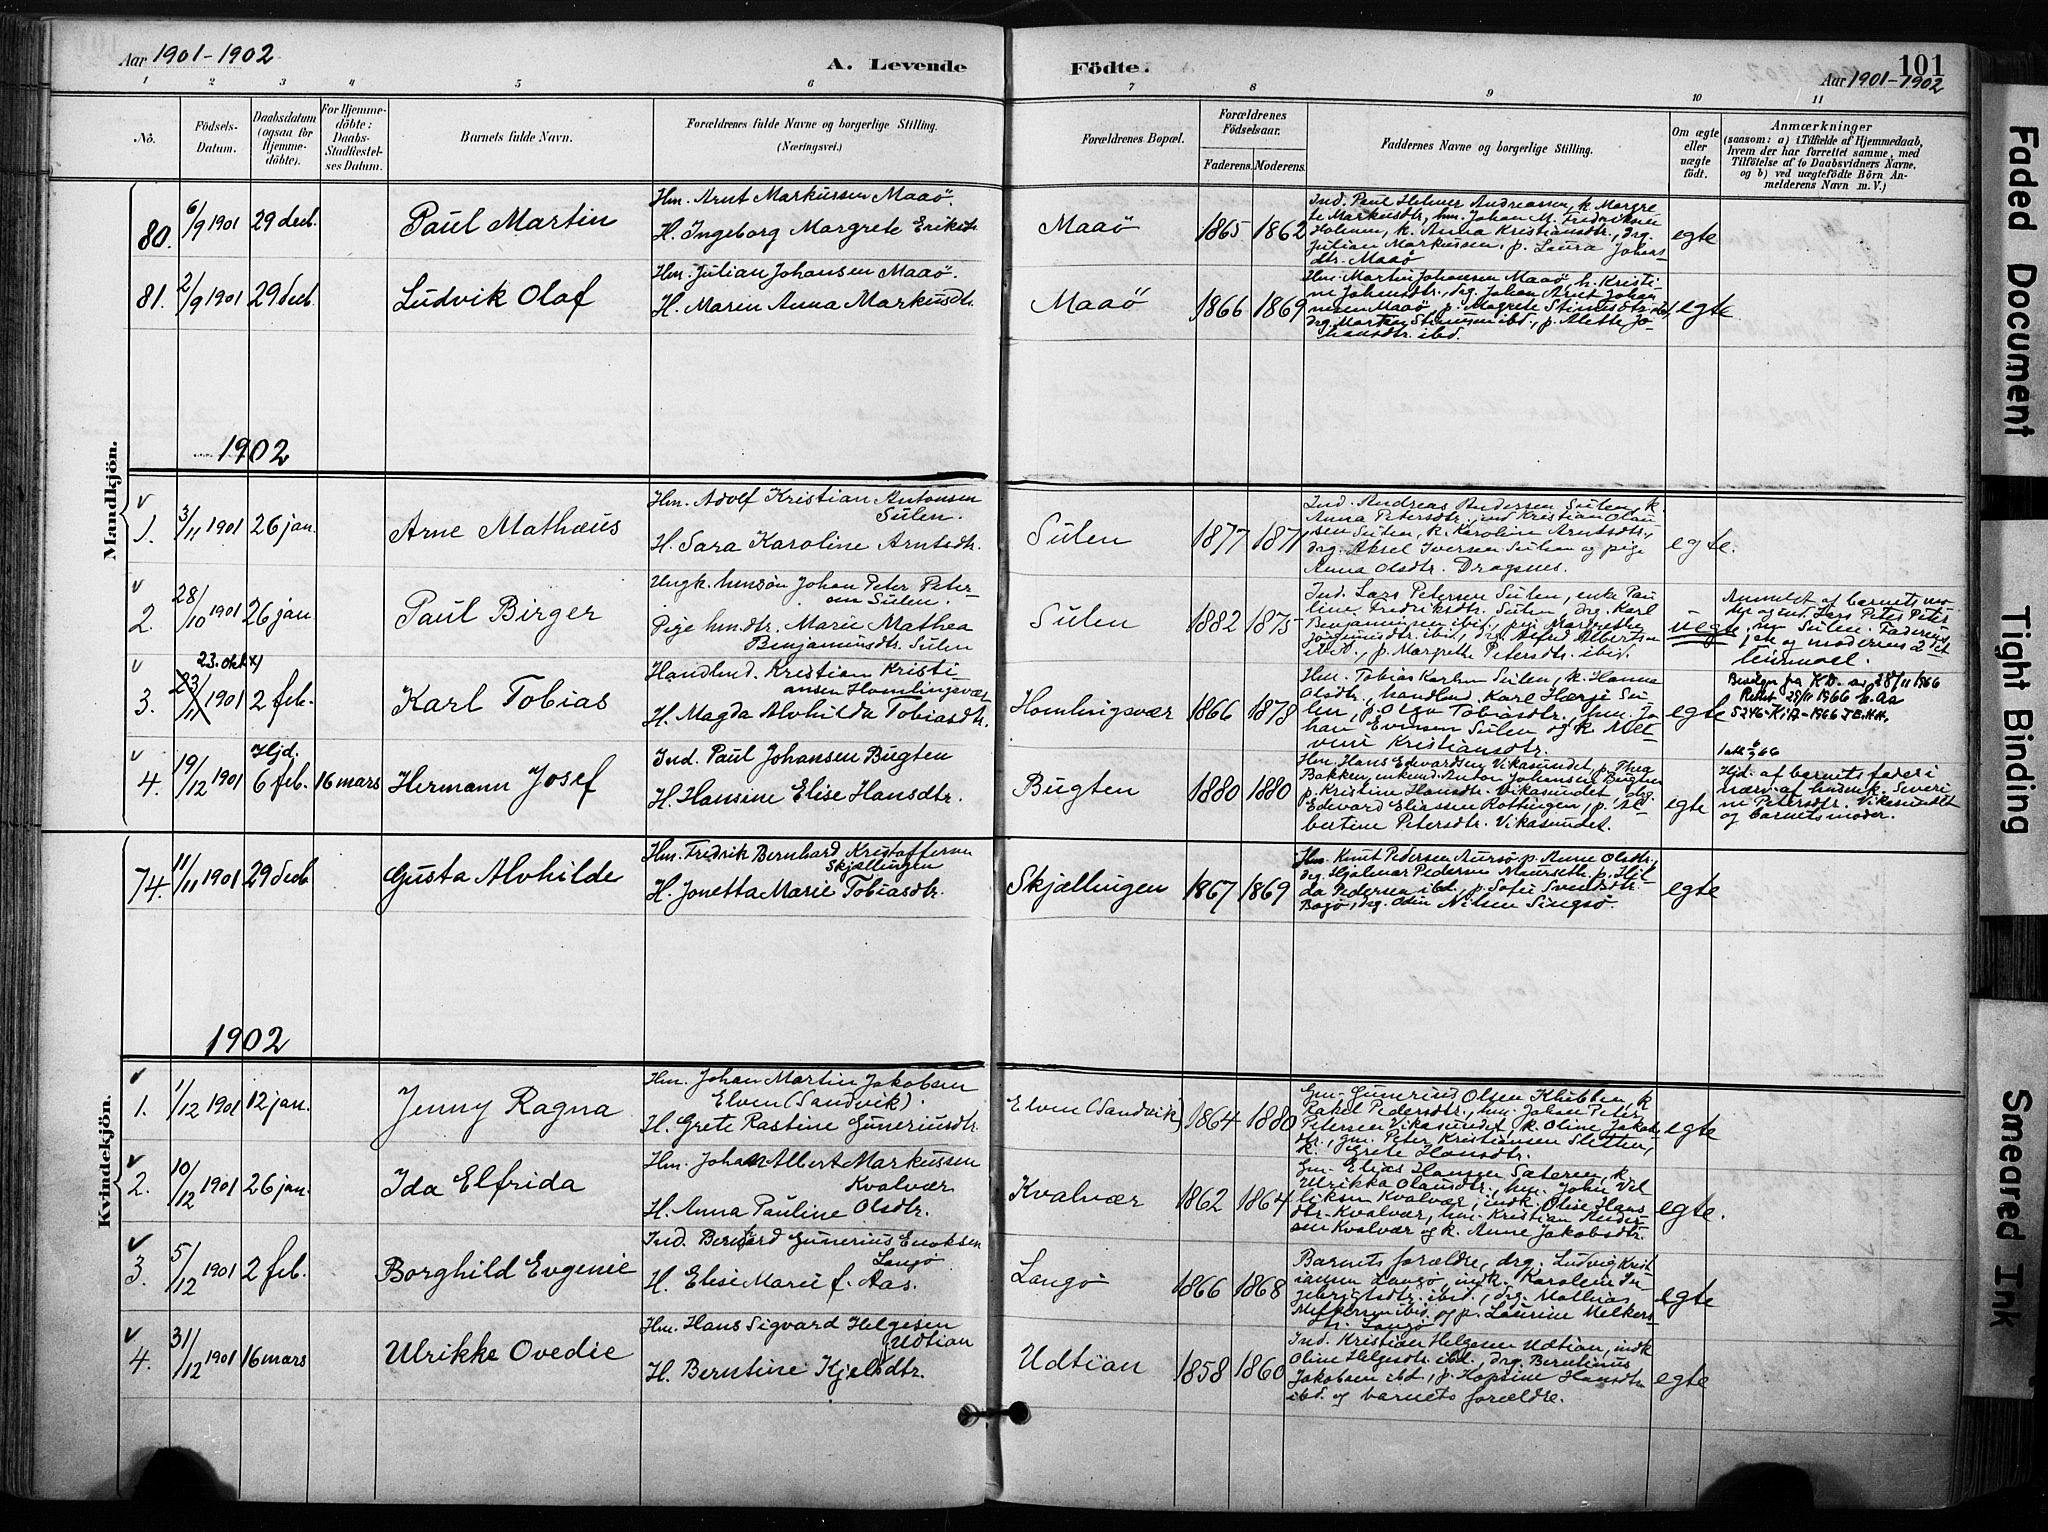 Aar 1901-1902
A. Levende Födte.
101
Aar 1901-1902
1 2 3 4 5 6 7 8 9 10 11
No.
Födsels-
Datum.
Daabsdatum
(ogsaa for
Hjemme-
döbte).
For Hjemme-
döbte:
Daabs-
Stadfæstel-
ses Datum.
Barnets fulde Navn.
Forældrenes fulde Navne og borgerlige Stilling.
(Næringsvei.)
Forældrenes Bopæl.
Forældrenes
Födselsaar.
Faderens. Moderens.
Faddernes Navne og borgerlige Stilling.
Om ægte
eller
uægte
födt.
Anmærkninger
(saasom: a) i Tilfælde af Hjemmedaab,
hvem der har forrettet samme, med
Tilföielse af to Daabsvidners Navne,
og b) ved uægtefödte Börn An-
melderens Navn m. V.)
Mandkjön.
80. 6/9 1901 29 decb. Paul Martin
Hm. Arnt Markussen Maaö.
H. Ingeborg Margrete Eriksdtr.
Maaö 1865 1862
Ind. Paul Helmer Andreassen, k. Margre-
te Markusdtr., hm. Johan M. Fredriksen
Holmen, k. Anna Kristiansdtr., drg.
Julian Markussen, p. Laura Johans-
dtr. Maaö
egte
81. 2/9 1901 29 decb. Ludvik Olaf
Hm. Julian Johansen Maaö.
H. Maren Anna Markusdtr.
Maaö 1866 1869
Hm. Martin Johansen Maaö, k. Kristi-
ne Johansdtr., drg. Johan Arnt Johan-
nesen Maaö, p. Magrete
drg. ibd., p. Alette Jo-
hansdtr. ibd.
egte.
1902
1. 3/11 1901 26 jan. Arne Mathæus
Hm. Adolf Kristian Antonsen
Sulen.
H. Sara Karoline Arntsdtr.
Sulen 1877 1871
Ind. Andreas Andersen Sulen, k.
Anna Petersdtr., ind. Kristian Olau-
sen Sulen, k. Karoline Arntsdtr.,
drg. Aksel Iversen Sulen og pige
Anna Olsdtr. Dragsnes.
egte.
2. 28/10 1901 26 jan Paul Birger
Ungk. hmsön Johan Peter Peter-
sen Sulen.
Pige hmdtr. Marie Mathea
Benjaminsdtr. Sulen
Sulen 1882 1875
Ind. Lars Petersen Sulen, enke Pau-
line Fredriksdtr. Sulen, drg. Karl
Benjaminsen ibid., pige Margrethe
ibid., drg. Alfred Albertsen
ibid., p. Margrethe Petersdtr. ibid.
uegte
Anmeldt af barnets mo-
der og ind. Lars Peter Peter-
sen Sulen. Faderens
1ste og moderens 2det
leiermaal.
3. 23. okt. 23/11 1901 2 feb. Karl Tobias
Handlend. Kristian Kristi-
ansen Homlingsvær
H. Magda Alvhilda Tobiasdtr.
Homlingsvær 1866 1878
Hm. Tobias Karlsen Sulen, k. Hanna
Olsdtr., handlend. Karl Su-
len, p. Olga Tobiasdtr., hm. Jo-
han Evensen Sulen og k. 
Kristiansdtr.
egte
Bevilgn fra K.D. av 28/11 1966
Rettet 29/11 1966
5246-KiA-1966 JE.HH.
4. 19/12 1901 Hjd. 6 feb. 16 mars Hermann Josef
Ind. Paul Johansen Bugten
H. Hansine Elise Hansdtr.
Bugten 1880 1880
Hm. Hans Edvardsen Vikasundet, p. Thea
Bakken, Anton Johansen Bugten
p. Kristine Hansdtr. Vikasundet, drg.
Edvard Eliassen Rottingen, p. Al-
bertine Petersdtr. Vikasundet.
egte
Hjd. af barnets fader i
nærv. af husm.k. Severi-
ne Petersdtr. Vikasundet
og barnets moder.
74. 11/11 1901 29 decb Gusta Alvhilde
Hm. Fredrik Bernhard Kristoffersen
Skjællingen
H. Jonetta Marie Tobiasdtr.
Skjællingen 1867 1869
Hm. Knut Pedersen Aursö, p. Anne Olsdtr.,
drg. Hjalmar Pedersen p. Hil-
da Pedersen ibd., p. Sofie Svendsdtr.
Bogö, drg. Odin Nilsen Singsö.
egte
1902
Kvindekjön.
1. 1/12 1901 12 jan. Jenny Ragna
Hm. Johan Martin Jakobsen
Elven (Sandvik).
H. Grete Rastine Guneriusdtr.
Elven (Sandvik) 1864 1880
Gm. Gunerius Olsen Klubben, k.
Rakel Pedersdtr., hm. Johan Peter
Petersen Vikasundet, k. Oline Jakobs-
dtr., gm. Peter Kristiansen Sletten,
k. Grete Hansdtr.
egte
2. 10/12 1901 26 jan. Ida Elfrida
Hm. Johan Albert Markussen
Kvalvær
H. Anna Pauline Olsdtr.
Kvalvær 1862 1864
Gm. Elias Hansen Sæteren, k.
Ulrikka Olausdtr., hm. John Vil-
liksen Kvalvær, indk. Olise Hans-
dtr. Kvalvær, hm. Kristian Ander-
sen Kvalvær og k. Anne Jakobsdtr.
egte.
3. 5/12 1901 2 feb. Borghild Evgenie
Ind. Bernhard Gunerius Enoksen
Langö
H. Elise Marie f. Aas.
Langö 1866 1868
Barnets forældre, drg. Ludvig Krist-
iansen Langö, indk. Karoline In-
gebrigtsdtr. ibid., drg. Mathias
Melkersen ibid. og p. Laurine Melkers-
dtr. Langö
egte
4. 31/12 1901 16 mars Ulrikke Ovedie
Hm. Hans Sigvard Helgesen
Udtian
H. Berntine Kjelsdtr.
Udtian 1858 1860
Ind. Kristian Helgesen Udtian, indk
Oline Helgesdtr. ibd., drg. Berntinus
Jakobsen ibd., p. Hansdtr.
ibd. og barnets forældre.
egte
Faded Document
Tight Binding
Smeared Ink